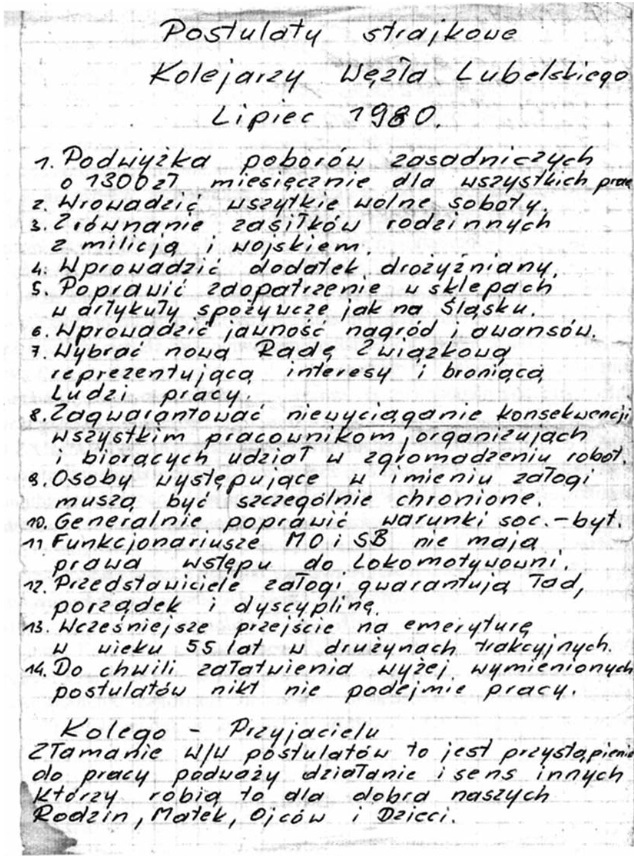 Postulaty strajkowe
Kolejarzy Węzła Lubelskiego
Lipiec 1980.
1. Podwyżka poborów zasadniczych
o 1300 zł miesięcznie dla wszystkich prac
2. Wrowadzić wszytkie wolne soboty.
3. Zrównanie zasiłków rodzinnych
z milicją i wojskiem.
4. Wprowadzić dodatek drożyźniany.
5. Poprawić zaopatrzenie w sklepach
w artykuły spożywcze jak na Śląsku.
6. Wprowadzić jawność nagród i awansów.
7. Wybrać nową Radę Związkową
reprezentującą interesy i broniącą
Ludzi pracy.
8. Zagwarantować niewyciąganie konsekwencji
wszystkim pracownikom organizująch
i biorących udział w zgromadzeniu robot.
9. Osoby występujące w imieniu załogi
muszą być szczególnie chronione.
10. Generalnie poprawić warunki soc.-byt.
11. Funkcjonariusze MO i SB nie mają
prawa wstępu do Lokomotywowni.
12. Przedstawiciele załogi gwarantują ład,
porządek i dyscyplinę.
13. Wcześniejsze przejście na emeryturę
w wieku 55 lat w drużynach trakcyjnych.
14. Do chwili załatwienia wyżej wymienionych
postulatów nikt nie podejmie pracy.
Kolego - Przyjacielu
Złamanie W/W postulatów to jest przystąpienie
do pracy podważy działanie i sens innych
Którzy robią to dla dobra naszych
Rodzin, Matek, Ojców i Dzieci.